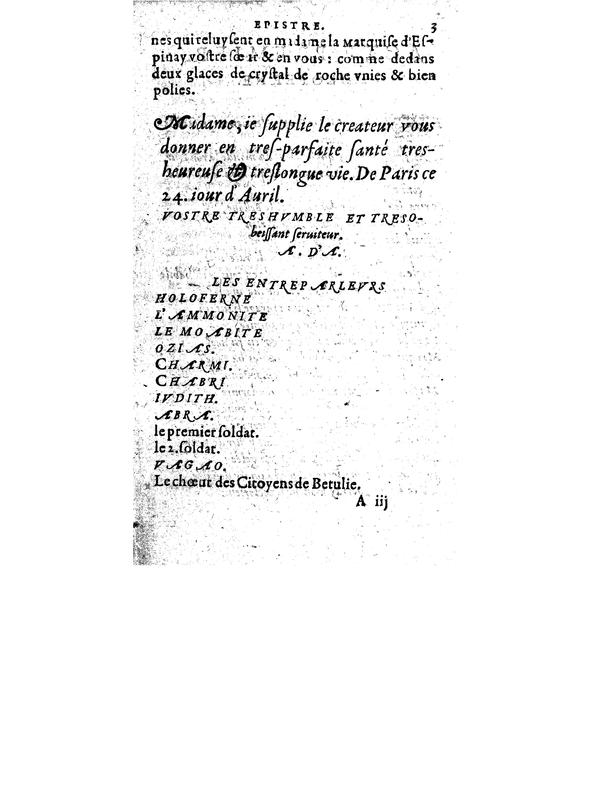 EPISTRE. 3
nes qui reluysent en madame la Marquise d'Es-
pinay vostre sœur & en vous : comme dedans
deux glaces de crystal de roche vnies & bien
polies.
Madame, ie supplie le createur vous
donner en tres-parfaite santé tres-
heureuse & treslongue vie. De Paris ce
24. iour d'Auril.
VOSTRE TRESHVMBLE ET TRESO-
beissant seruiteur.
A. D'A.
LES ENTREPARLEVRS
HOLOFERNE
L'AMMONITE
LE MOABITE
OZIAS.
CHARMI.
CHABRI
IVDITH.
ABRA.
le premier soldat.
le 2. soldat.
VAGAO.
Le chœur des Citoyens de Betulie.
A iij